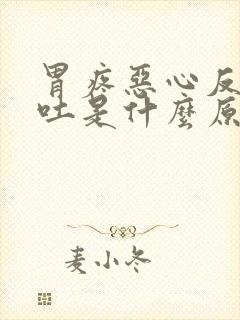 胃疼惡心反
吐是什麼原
麦小冬